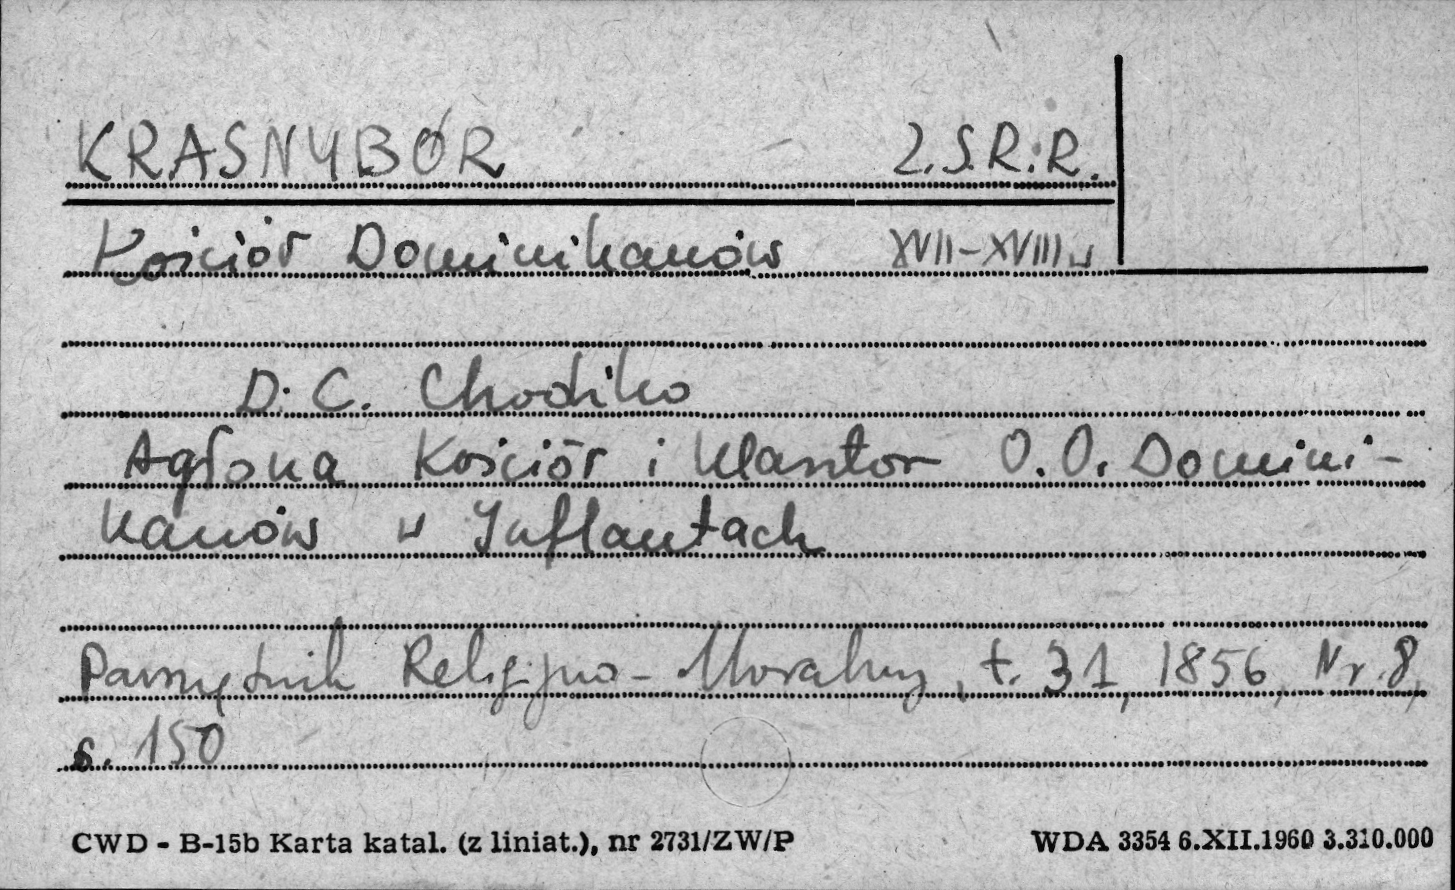 KRASNYBÓR Z.S.R.R.
Kościół Dominikanów XVII-XVIII w
D. C. Chodźko
Agłona Kościół i klasztor O.O. Domini-
kanów w Inflantach
Pamiętnik Religijno-Moralny, t. 31, 1856, Nr. 8,
s. 150
CWD - B-15b Karta katal. (z liniat.), nr 2731/ZW/P WDA 3354 6.XII.1960 3.310.000